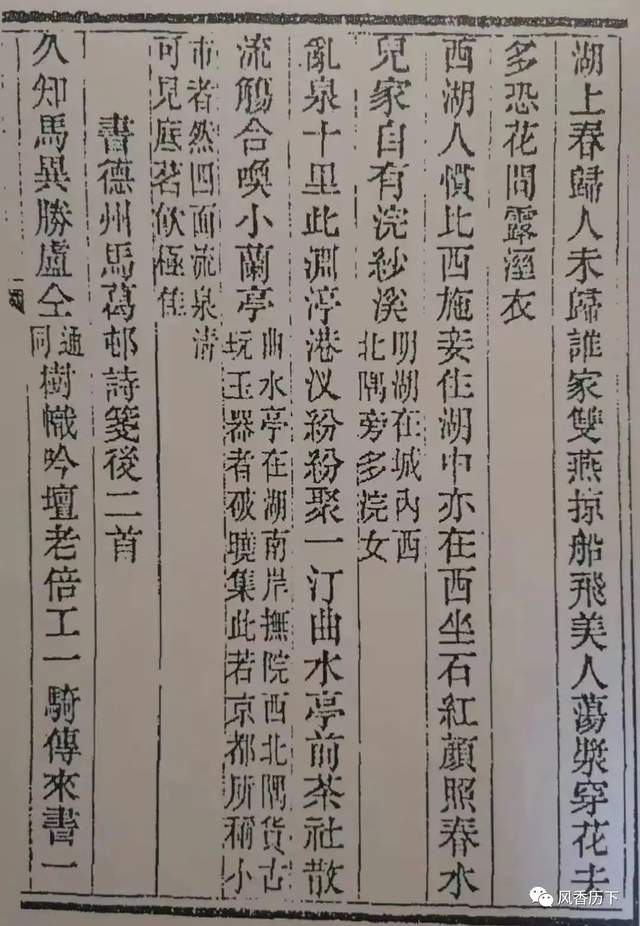 湖上春歸人未歸誰家雙燕掠船飛美人蕩漿穿花去
多恐花間露溼衣
西湖人慣比西施妾住湖中亦在西坐石紅顏照春水
兒家自有浣紗溪
明湖在城內西
北隅旁多浣女
亂泉十里此淵渟港汊紛紛聚一汀曲水亭前茶社散
流觴合喚小蘭亭
曲水亭在湖南岸撫院西北隅貨古
玩玉器者破曉集此若京都所稱小
市者然四面流泉清
可見底茗飲極佳
書德州馬葛邨詩箋後二首
久知馬異勝盧仝
通
同
樹幟吟壇老倍工一騎傳來書一
风香历下